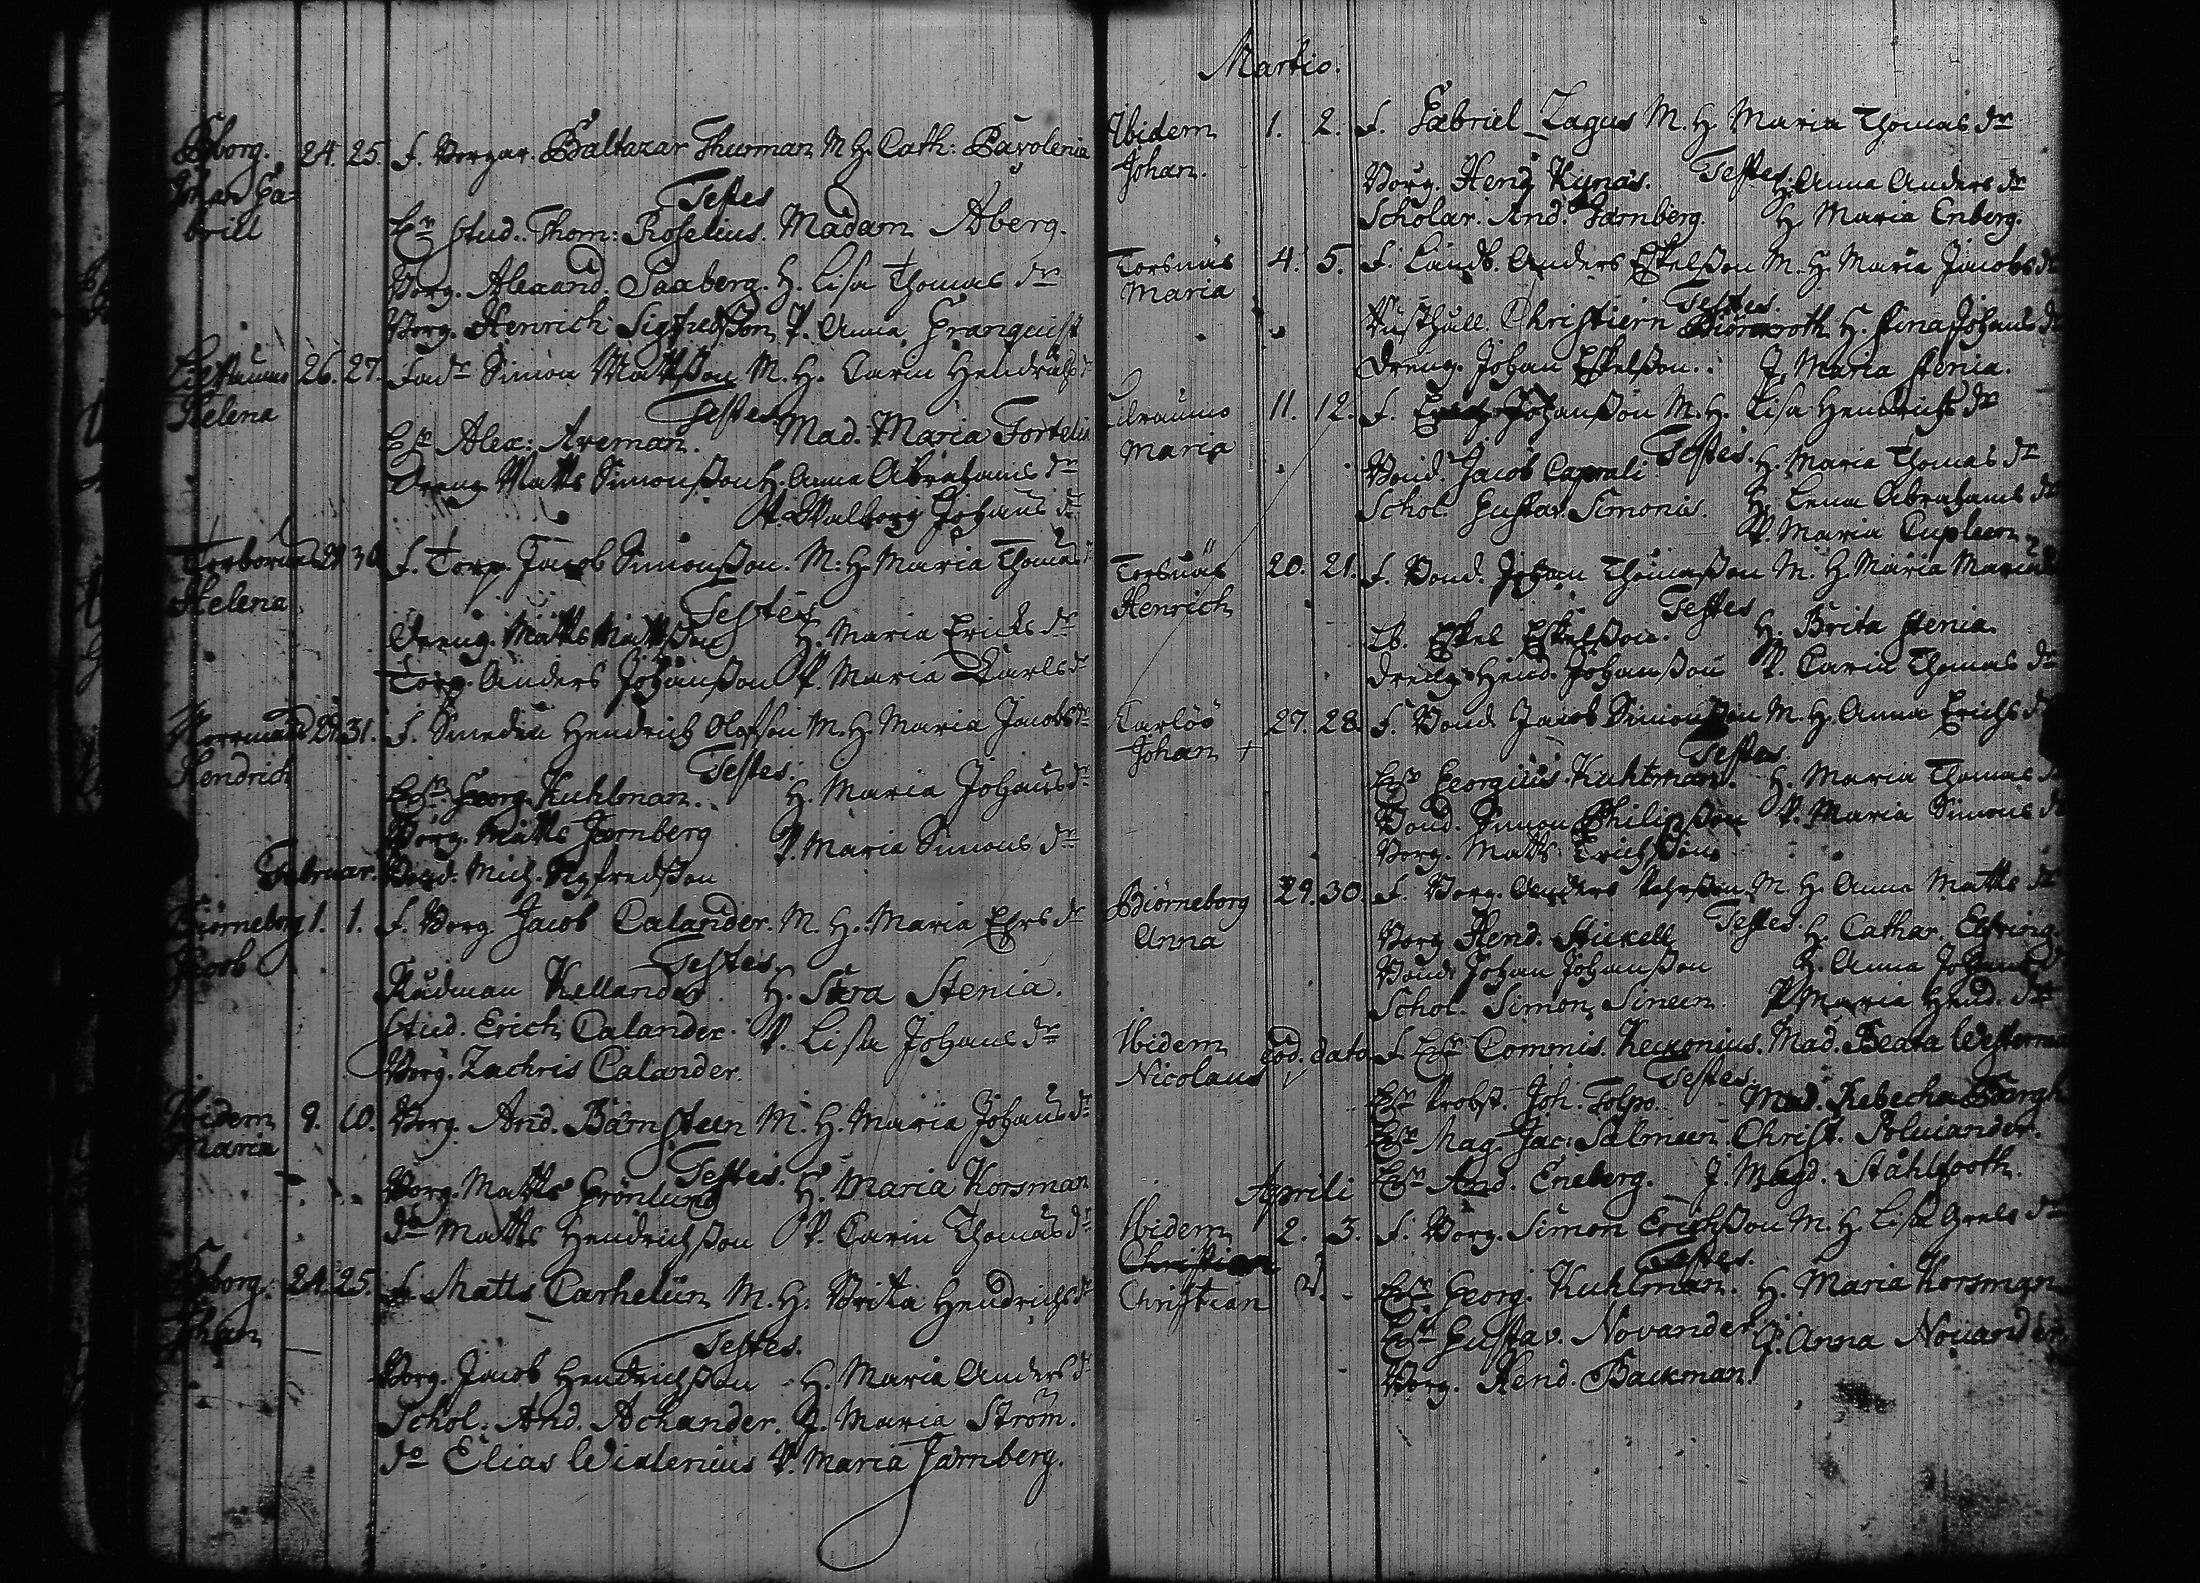 Bborg. 24. 25. F. Borgar. Baltazar Thurman M H. Cath: Pavolenia
Johan Ga-
briel
Testes
Hr Stud. Thom: Roselius. Madam Åberg.
Borg. Alexand. Saxberg. H. Lisa Thomas dr
Borg. Henrich Sigfredsson P. Anna Granquist
26. 27. Simon Mattsson M. H. Carin Hendrichs dr
Helena
Testes
Hr Alex: Areman. Mad. Maria Fortelia
Dreng Matts Simonsson H. Anna Abrahams dr
P. Walborg Johans dr
29 30 F. Torp. Jacob Simonsson. M. H. Maria Thomas dr
Helena
Testes
Dreng. Matts Mattsson H. Maria Ericks dr
Torp. Anders Johansson P. Maria Carls dr
Norrmark 29. 31. F. Smeden Hendrich Olofsson M. H. Maria Jacobs dr
Hendrich
Testes.
Hr Georg. Kuhlman. H. Maria Johans dr
Borg. Matts Jernberg P. Maria Simons dr
Februar. Bond. Mich. Sigfredsson
Biörneborg 1. 1. F. Borg Jacob Calander. M. H. Maria Ehrs dr
Jacob
Testes
Rådman Kellander H. Sara Stenia.
Stud. Erich Calander. P. Lisa Johans dr
Borg. Zachris Calander.
Ibidem 9. 10. Borg. And. Bärnsteen M. H. Maria Johans dr
Maria
Testes.
Borg. Matts Grönlund H. Maria Korsman
do Matts Hendrichsson P. Carin Thomas dr
Bborg. 24. 25. F. Matts Carhelin M. H. Brita Hendrichs dr
Johan
Testes.
Borg. Jacob Hendrichsson H. Maria Anders dr
Schol. And. Achander. J. Maria Ström.
do Elias Widenius P. Maria Jernberg.
Martio.
Ibidem 1. 2. F. Gabriel Zagus M. H. Maria Thomas dr
Johan.
Testes.
Borg. Hend. Kynäs. H. Anna Anders dr
Scholar. And. Jernberg. H. Maria Enberg.
Torsnäs 4. 5. F. Landb. Anders Eskelsson M. H. Maria Jacobs dr
Maria
Testes.
Rusthåll. Christiern Björnroth H. Stina Johans dr
Dreng. Johan Eskelsson. J. Maria Stenia.
Lilraumo 11. 12. F. Erich Johansson M. H. Lisa Hendrichs dr
Maria
Testes.
Bond. Jacob Caprali H. Maria Thomas dr
Schol. Gustav. Simonis. H. Lena Abrahams dr
P. Maria Cupleen
Torsnäs 20. 21. F. Bond. Johan Thomasson M. H. Maria
Henrich
Testes
Lb. Eskel Eskelsson. H. Brita Stenia.
Dreng Hend. Johansson P. Carin Thomas dr
Carlöö 27. 28. F. Bond. Jacob Simonsson M. H. Anna Erichs dr
Johan +
Testes.
Hr Georgius Kuhlman. H. Maria Thomas dr
Bond. Simon Philipsson P. Maria Simons dr
Borg. Matts Erichsson
Biörneborg 29. 30. F. Borg. Anders M. H. Anna Matts dr
Anna
Testes.
Borg Hend. Stickell H. Cathar. Elfving.
Bond. Johan Johansson H. Anna Johans dr
Schol. Simon Sineen P. Maria Hend. dr
Ibidem eod. dato F. Hr Commis. Keckonius. Mad. Beata Westerman
Nicolaus
Testes.
Hr Probst. Joh. Tolpo. Mad. Rebecha Bergh
Hr Mag. Jac: Salmeen Christ. Polviander.
Hr And. Eneberg. J. Magd. Stålfooth.
Aprili
Ibidem 2. 3. F. Borg. Simon Erichsson M. H. Lisa Grels dr
Christian
Christian
Testes.
Hr Georg. Kuhlman. H. Maria Korsman
Hr Gustav. Novander J. Anna Novander
Borg. Hend. Backman.